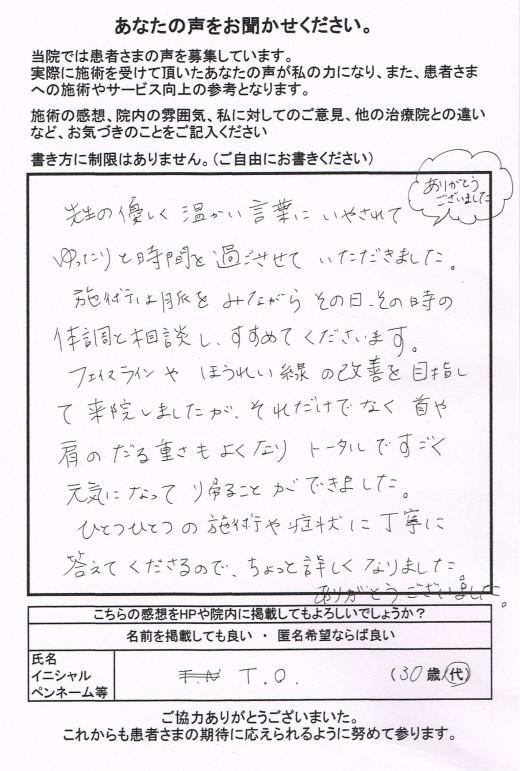 あなたの声をお聞かせください。
当院では患者さまの声を募集しています。
実際に施術を受けて頂いたあなたの声が私の力になり、また、患者さま
への施術やサービス向上の参考となります。
施術の感想、院内の雰囲気、私に対してのご意見、他の治療院との違い
など、お気づきのことをご記入ください
書き方に制限はありません。（ご自由にお書きください）
ありがとう
ございました
先生の優しく温かい言葉にいやされて
ゆったりと時間を過ごさせていただきました。
施術は脈をみながらその日、その時の
体調と相談し、すすめてくださいます。
フェイスラインやほうれい線の改善を目指し
て来院しましたが、それだけでなく首や
肩のだる重さもよくなりトータルですごく
元気になってり帰ることができました。
ひとつひとつの施術や症状に丁寧に
答えてくださるので、ちょっと詳しくなりました。
ありがとうございました。
こちらの感想をHPや院内に掲載してもよろしいでしょうか？
名前を掲載しても良い ・ 匿名希望ならば良い
氏名
イニシャル
ペンネーム等
T.N T.O. （30歳代）
ご協力ありがとうございまいた。
これからも患者さまの期待に応えられるように努めて参ります。